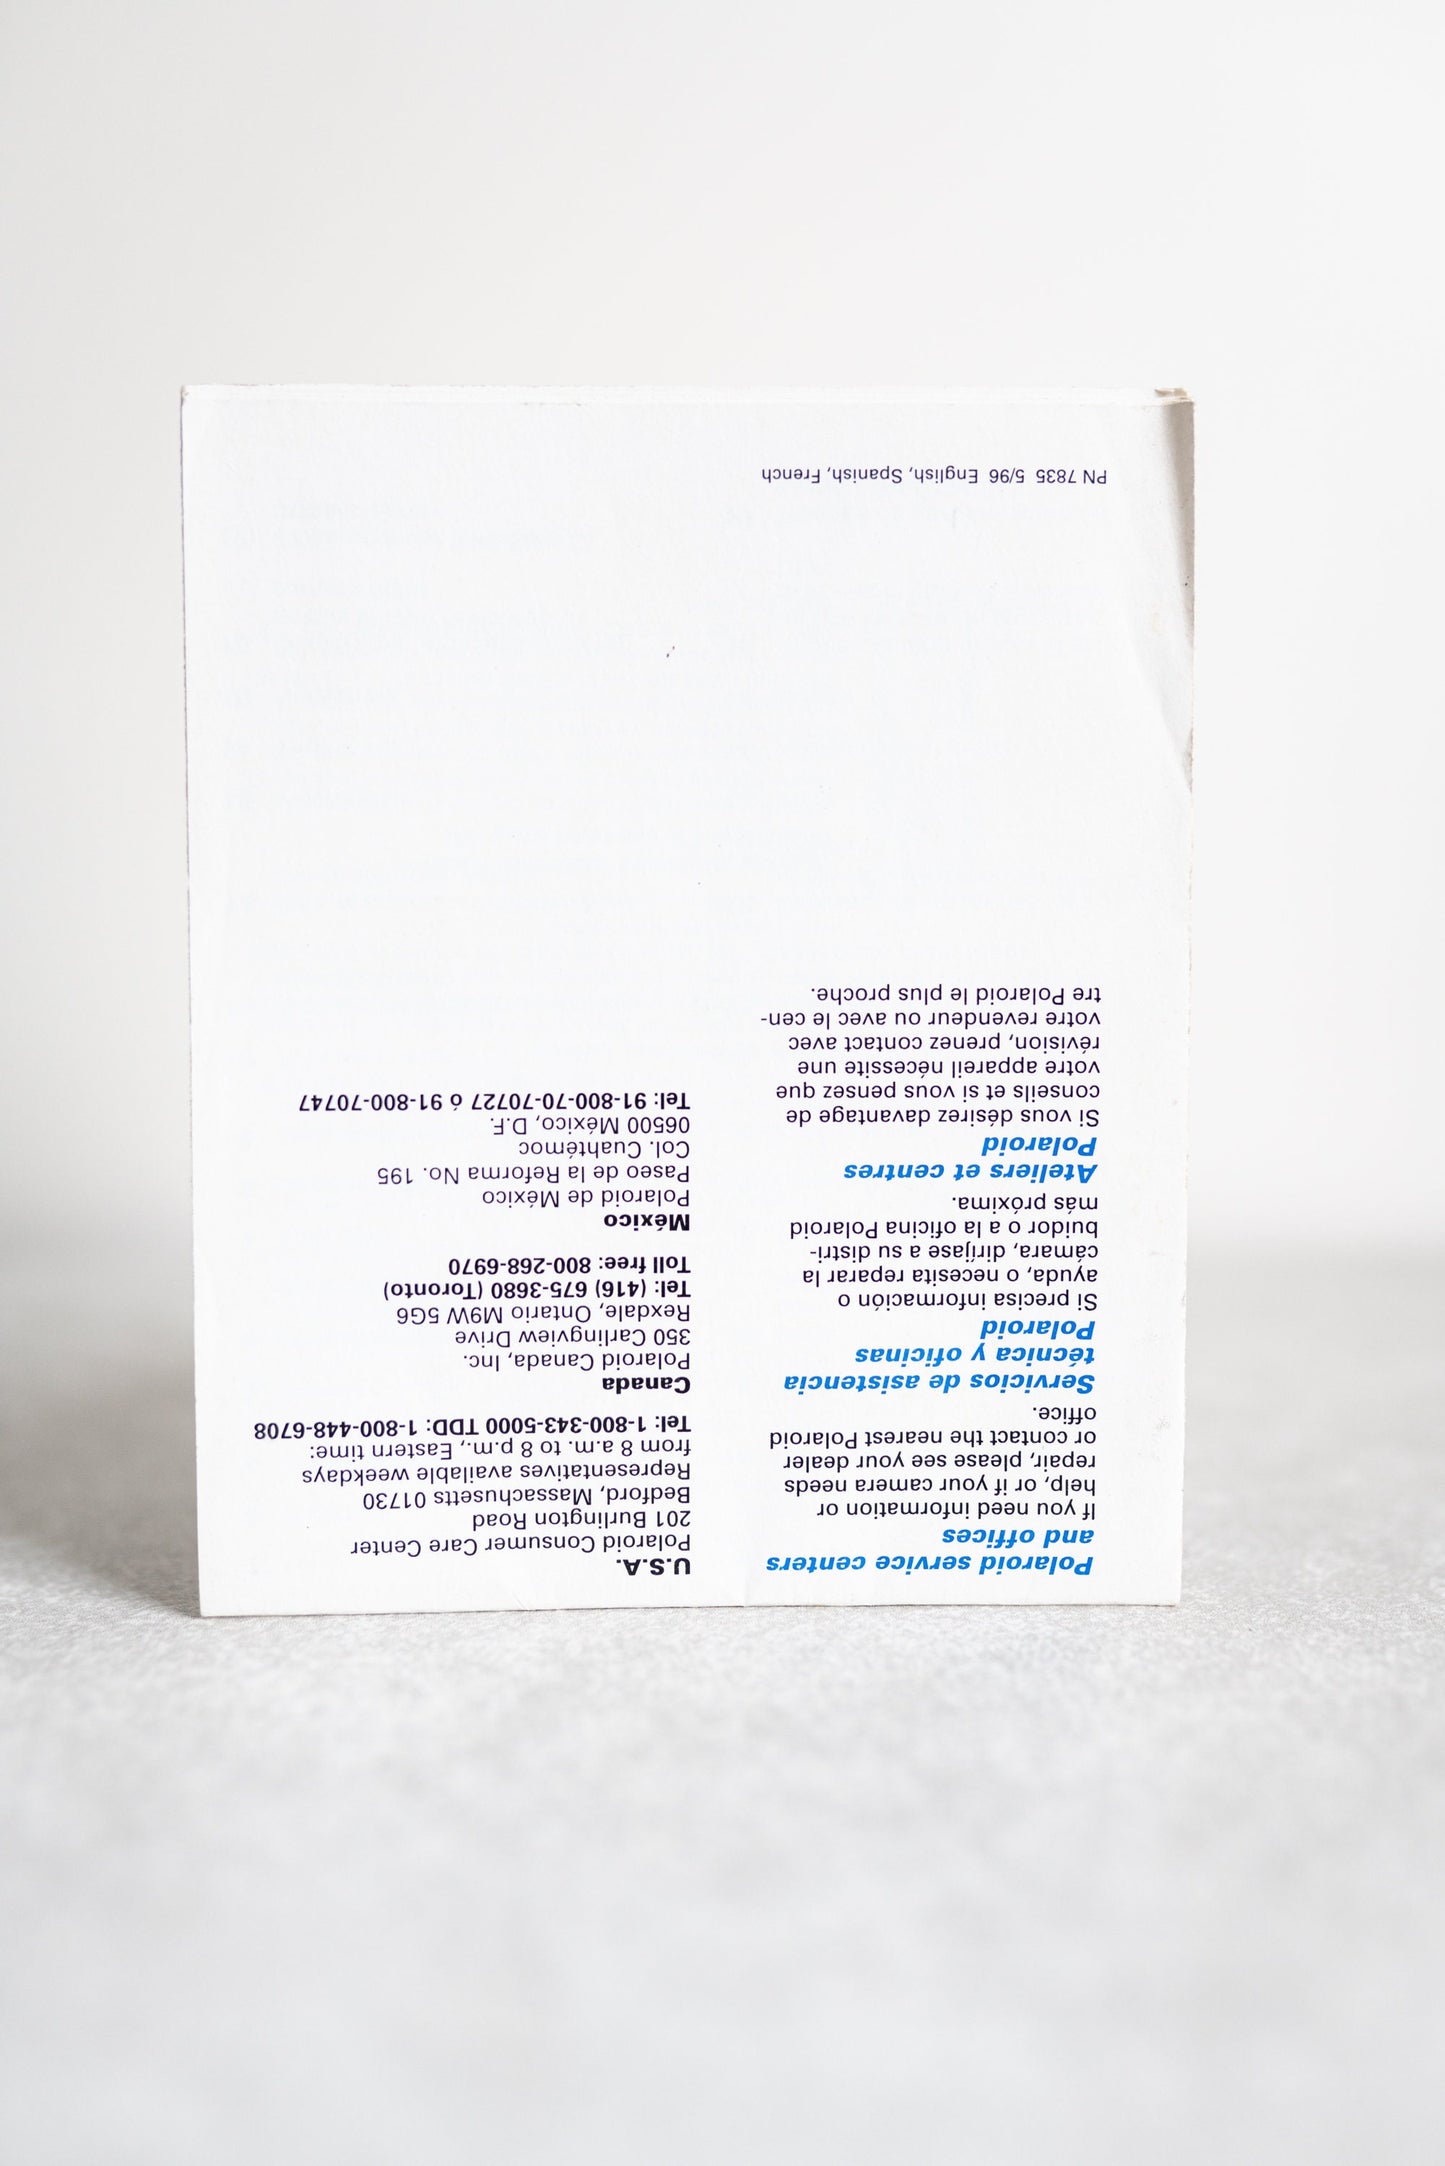 Polaroid service centers
and offices
If you need information or
help, or if your camera needs
repair, please see your dealer
or contact the nearest Polaroid
office.
Servicios de asistencia
técnica y oficinas
Polaroid
Si precisa información o
ayuda, o necesita reparar la
cámara, diríjase a su distri-
buidor o a la oficina Polaroid
más próxima.
Ateliers et centres
Polaroid
Si vous désirez davantage de
conseils et si vous pensez que
votre appareil nécessite une
révision, prenez contact avec
votre revendeur ou avec le cen-
tre Polaroid le plus proche.
U.S.A.
Polaroid Consumer Care Center
201 Burlington Road
Bedford, Massachusetts 01730
Representatives available weekdays
from 8 a.m. to 8 p.m., Eastern time:
Tel: 1-800-343-5000 TDD: 1-800-448-6708
Canada
Polaroid Canada, Inc.
350 Carlingview Drive
Rexdale, Ontario M9W 5G6
Tel: (416) 675-3680 (Toronto)
Toll free: 800-268-6970
México
Polaroid de México
Paseo de la Reforma No. 195
Col. Cuahtémoc
06500 México, D.F.
Tel: 91-800-70-70727 ó 91-800-70747
PN 7835 5/96 English, Spanish, French